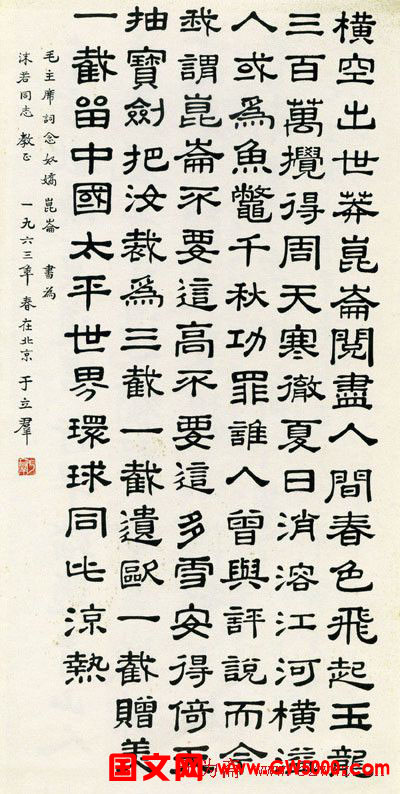 橫空出世莽崑崙閱盡人間春色飛起玉龍
三百萬攪得周天寒徹夏日消溶江河橫溢
人或爲魚鼈千秋功罪誰人曾與評說而今
我謂崑崙不要這高不要這多雪安得倚天
抽寶劍把汝裁爲三截一截遺歐一截贈美
一截留中國太平世界環球同此涼熱
毛主席詞念奴嬌崑崙 書為
沫若同志教正 一九六三年春在北京 于立群
国文网 www.GW5000.com